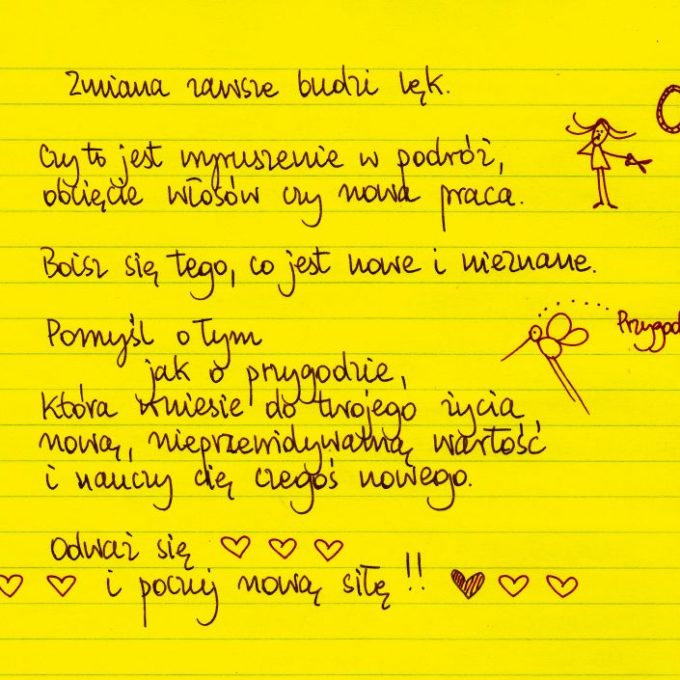 Zmiana zawsze budzi lęk.
Czy to jest wyruszenie w podróż,
obcięcie włosów czy nowa praca.
Boisz się tego, co jest nowe i nieznane.
Pomyśl o tym
jak o przygodzie,
która wniesie do twojego życia
nową, nieprzewidywalną wartość
i nauczy cię czegoś nowego.
Przygod
Odważ się
i poczuj nową siłę !!